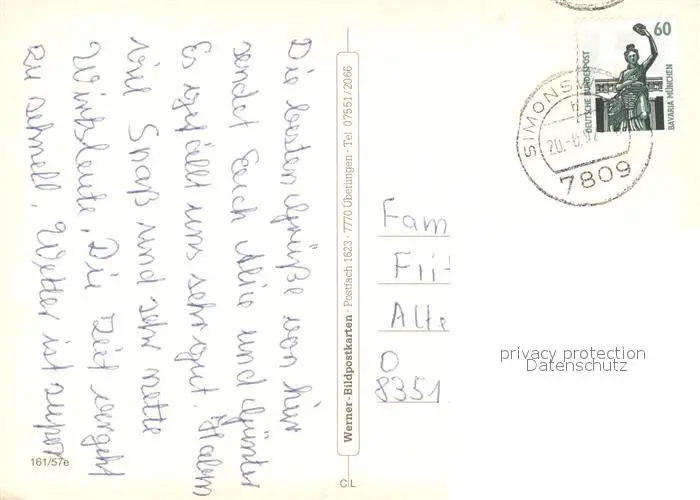 Die besten Grüße von hier
sendet Euch Alie und Günter
Es gefällt uns sehr gut. Haben
viel Spaß und sehr nette
Wirtsleute. Die Zeit vergeht
zu schnell. Wetter ist super
161/57e
Werner-Bildpostkarten · Postfach 1623 · 7770 Überlingen · Tel 07551/2066
C L
60
DEUTSCHE BUNDESPOST
BAVARIA MÜNCHEN
SIMONS
20.-8.92
7809
Fam
Alte
O
8351
privacy protection
Datenschutz